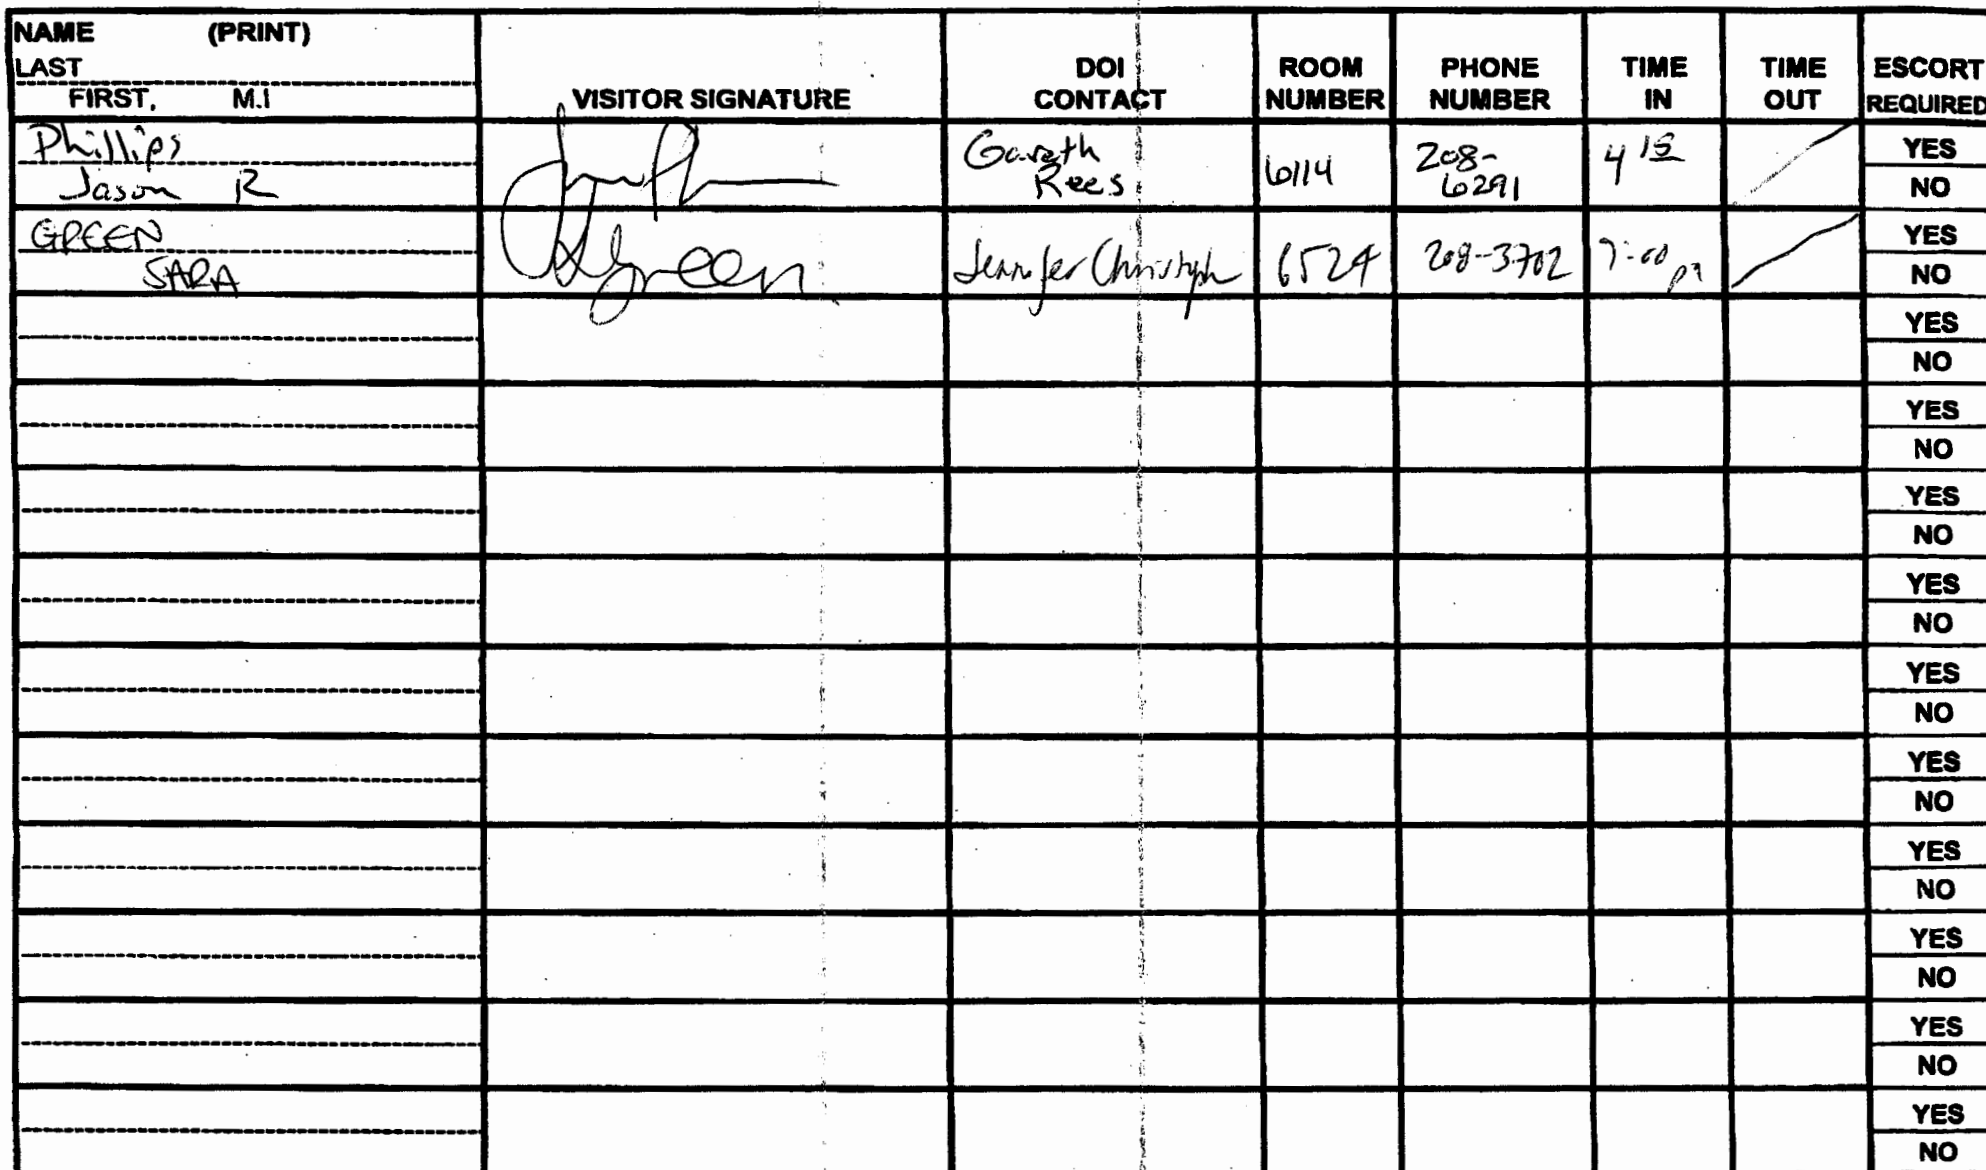 NAME (PRINT)
LAST
FIRST, M.I
VISITOR SIGNATURE
DOI
CONTACT
ROOM
NUMBER
PHONE
NUMBER
TIME
IN
TIME
OUT
ESCORT
REQUIRED
Phillips
Jason R
Gareth
Rees
6114
208-
6291
4 15
YES
NO
GREEN
SARA
SGreen
Jennifer Christoph
6524
208-3702
7:00 pm
YES
NO
YES
NO
YES
NO
YES
NO
YES
NO
YES
NO
YES
NO
YES
NO
YES
NO
YES
NO
YES
NO